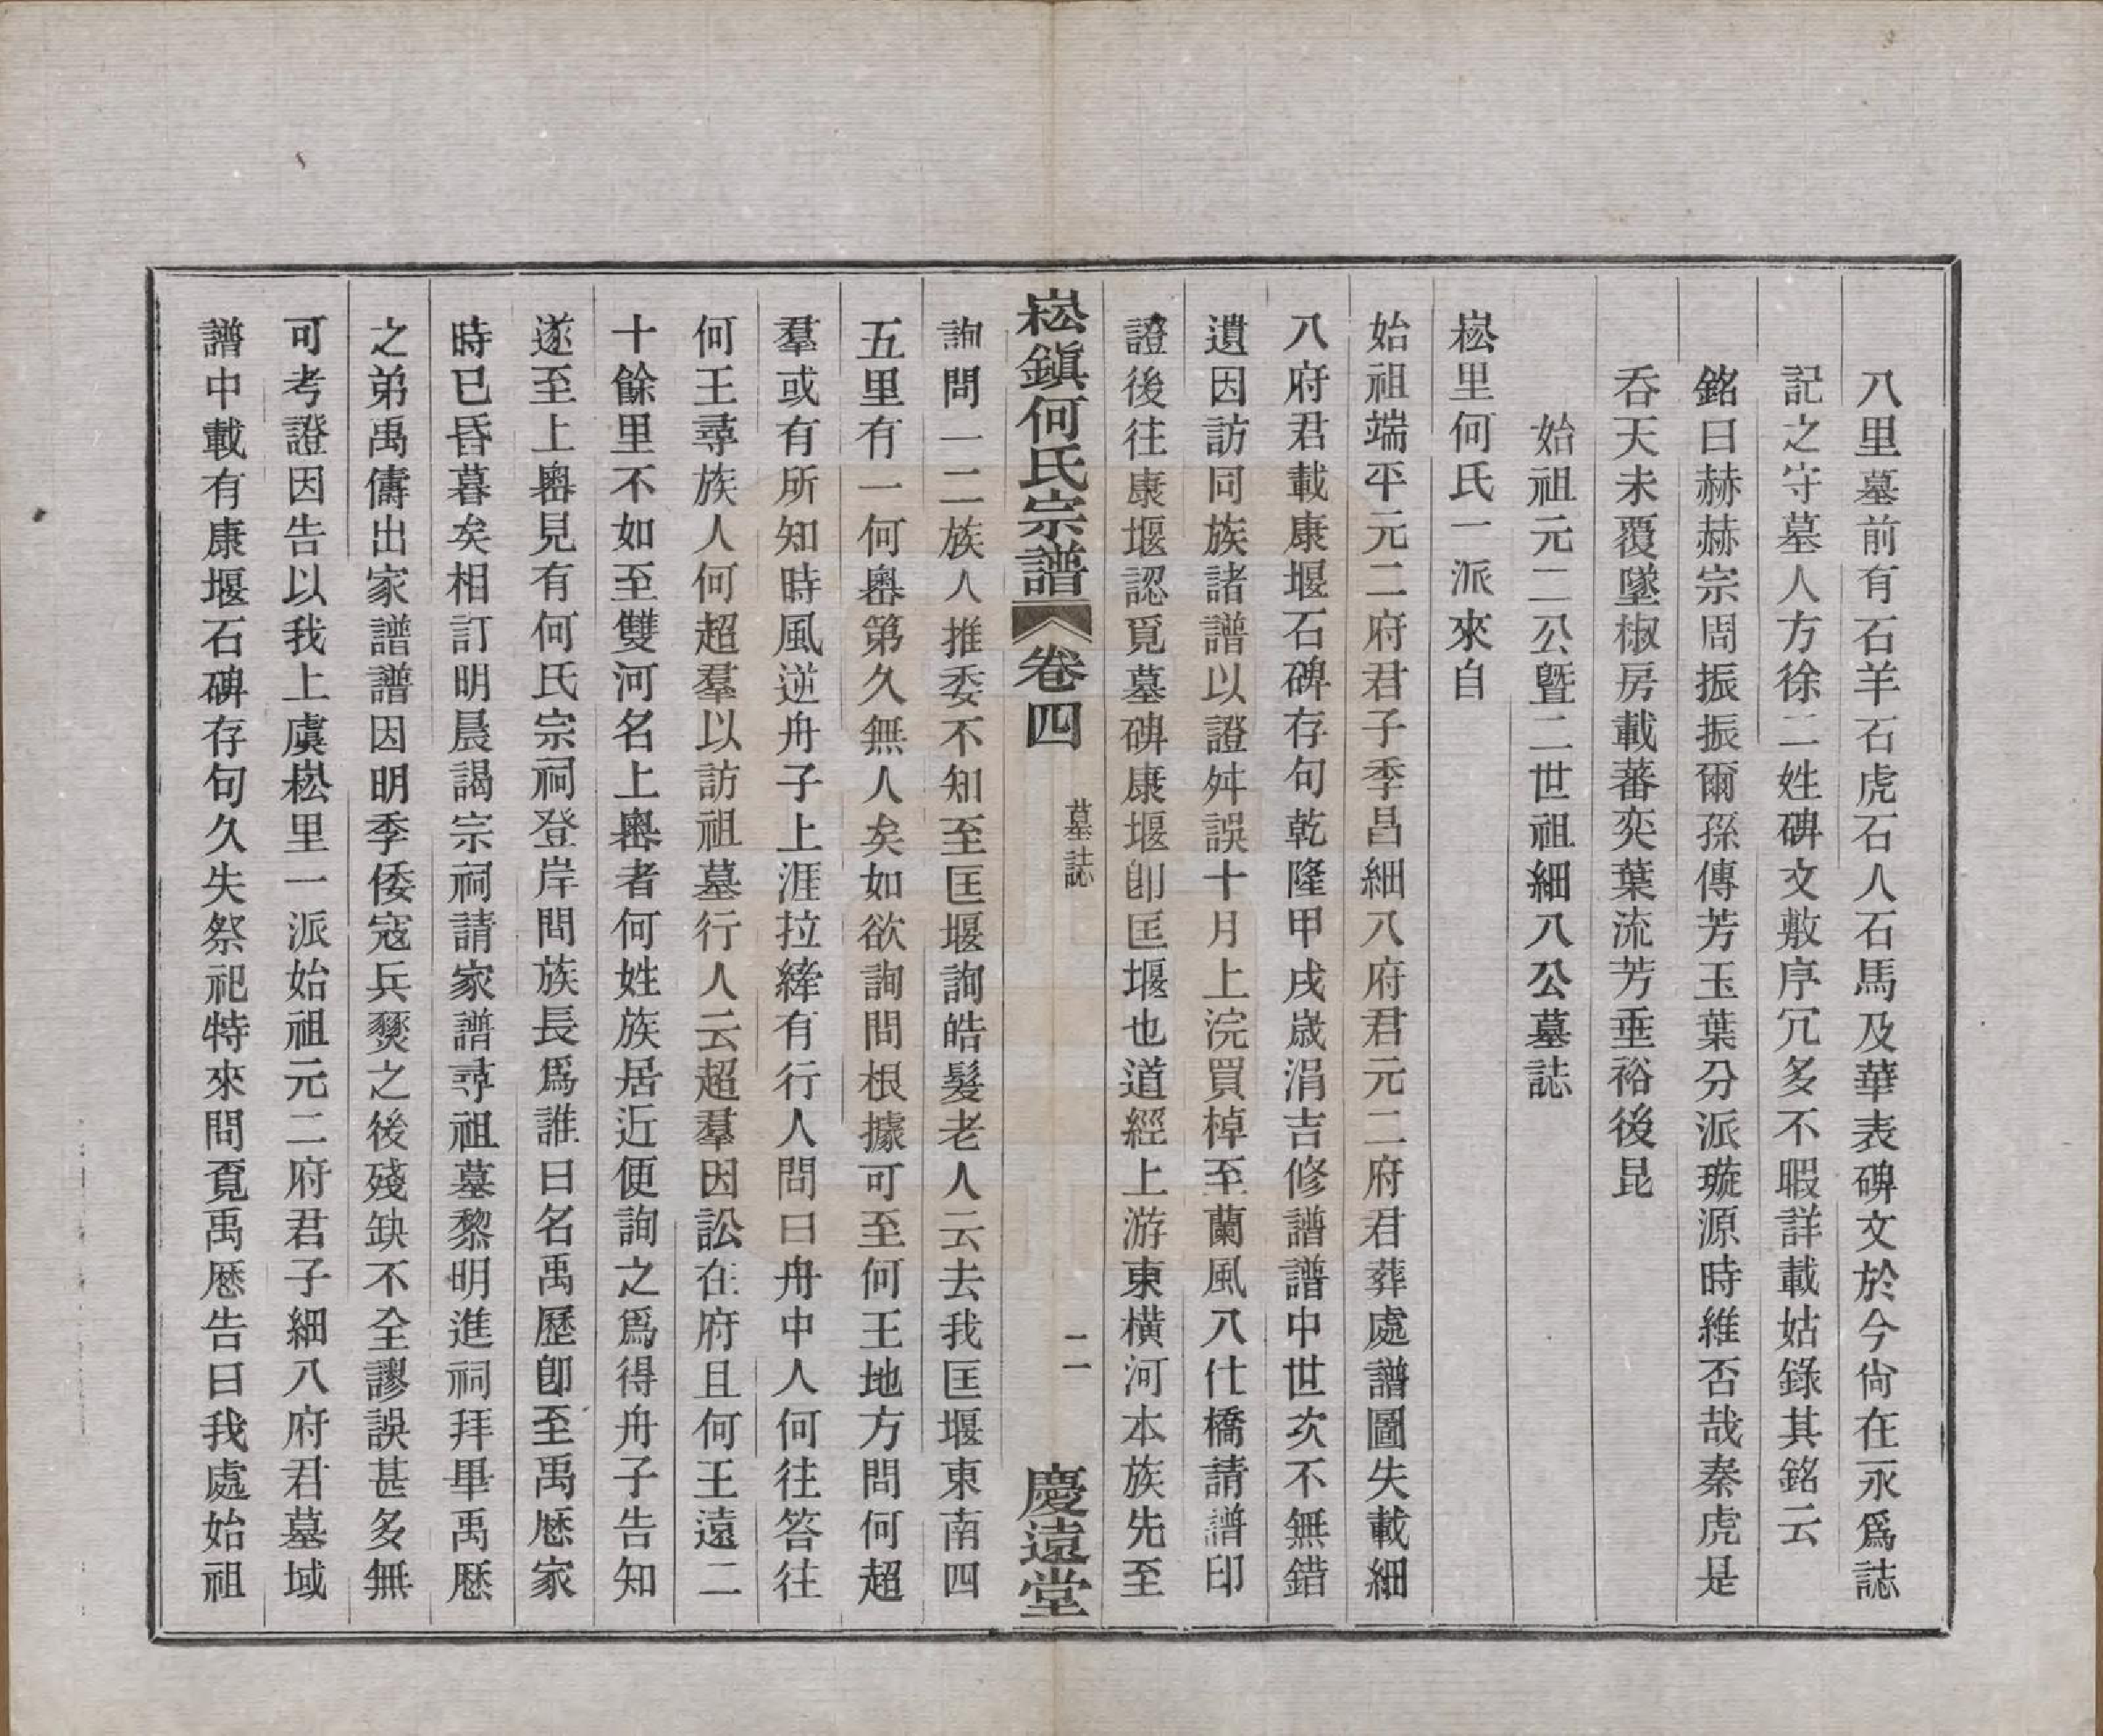 八里墓前有石羊石虎石人石馬及華表碑文於今尙在永爲誌
記之守墓人方徐二姓碑文敷序冗多不暇詳載姑錄其銘云
銘曰赫赫宗周振振爾孫傳芳玉葉分派璇源時維否哉秦虎是
吞天未覆墜椒房載蕃奕葉流芳垂裕後昆
始祖元二公曁二世祖細八公墓誌
崧里何氏一派來自
始祖端平元二府君子季昌細八府君元二府君葬處譜圖失載細
八府君載康堰石碑存句乾隆甲戌歲涓吉修譜譜中世次不無錯
遺因訪同族諸譜以證舛誤十月上浣買棹至蘭風八仕橋請譜印
證後往康堰認覓墓碑康堰卽匡堰也道經上游東橫河本族先至
崧鎭何氏宗譜 卷四 墓誌 二 慶遠堂
詢問一二族人推委不知至匡堰詢皓髮老人云去我匡堰東南四
五里有一何嶴第久無人矣如欲詢問根據可至何王地方問何超
羣或有所知時風逆舟子上涯拉縴有行人問曰舟中人何往答往
何王尋族人何超羣以訪祖墓行人云超羣因訟在府且何王遠二
十餘里不如至雙河名上嶴者何姓族居近便詢之爲得舟子告知
遂至上嶴見有何氏宗祠登岸問族長爲誰曰名禹歷卽至禹歷家
時已昏暮矣相訂明晨謁宗祠請家譜尋祖墓黎明進祠拜畢禹歷
之弟禹儔出家譜譜因明季倭寇兵燹之後殘缺不全謬誤甚多無
可考證因告以我上虞崧里一派始祖元二府君子細八府君墓域
譜中載有康堰石碑存句久失祭祀特來問覔禹歷告曰我處始祖